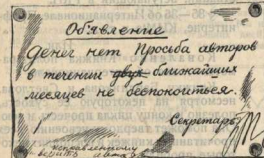 Объявление
Денег нет Просьба авторов
в течении двух ближайших
месяцев не беспокоиться.
Секретарь
исправленному
верить